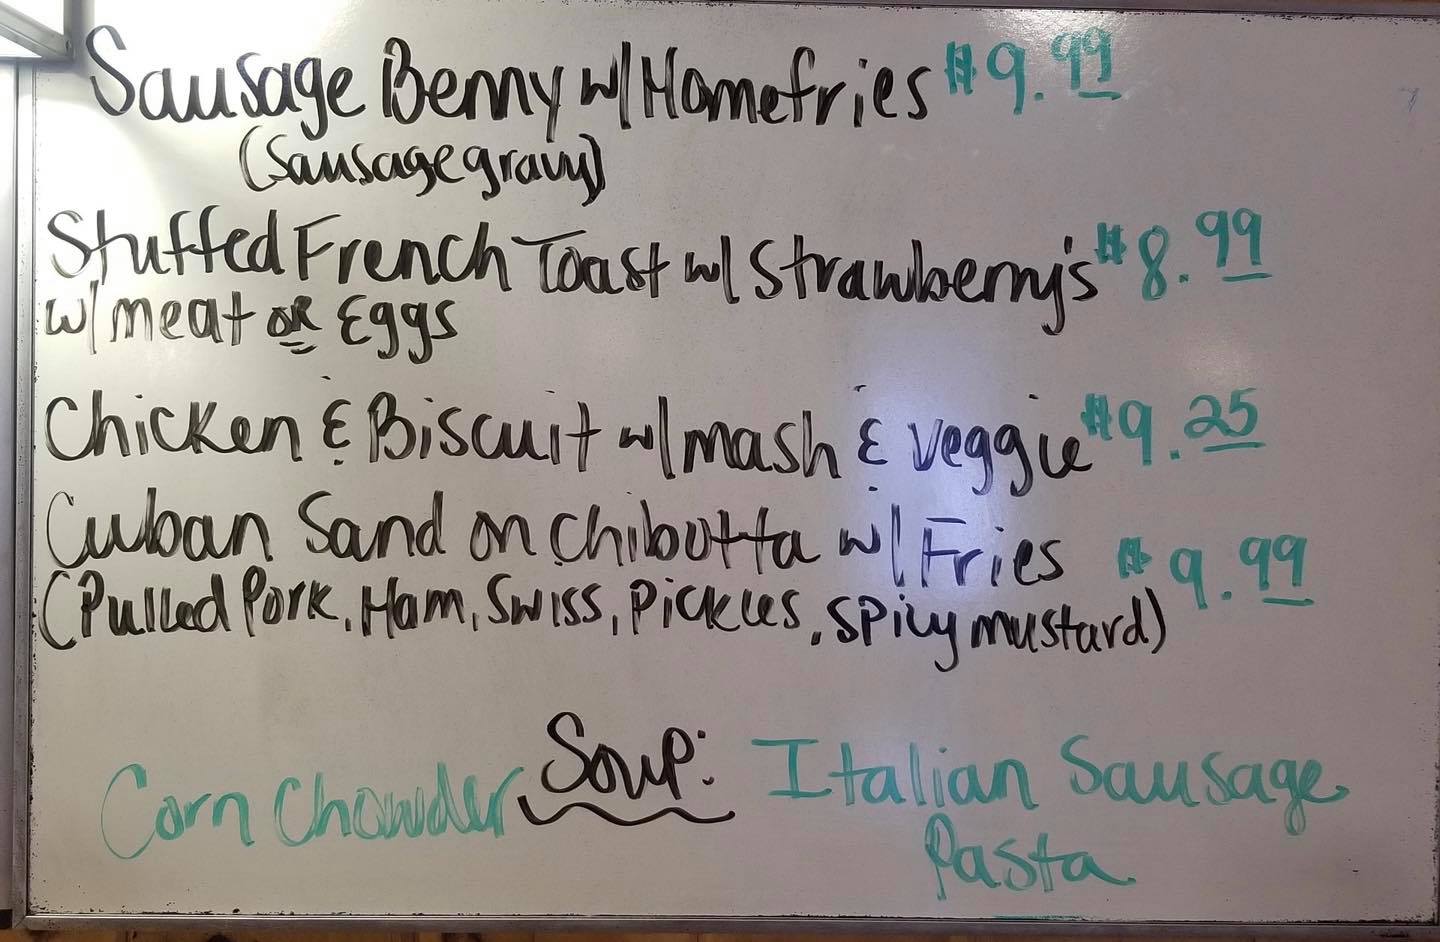 Sausage Benny w/ Homefries $9.99
(Sausage gravy)
Stuffed French Toast w/ Strawberry's $8.99
w/ meat OR Eggs
Chicken & Biscuit w/ mash & veggie $9.25
Cuban Sand on Chibotta w/ Fries $9.99
(Pulled Pork, Ham, Swiss, Pickles, Spicy mustard)
Soup:
Corn Chowder
Italian Sausage
Pasta